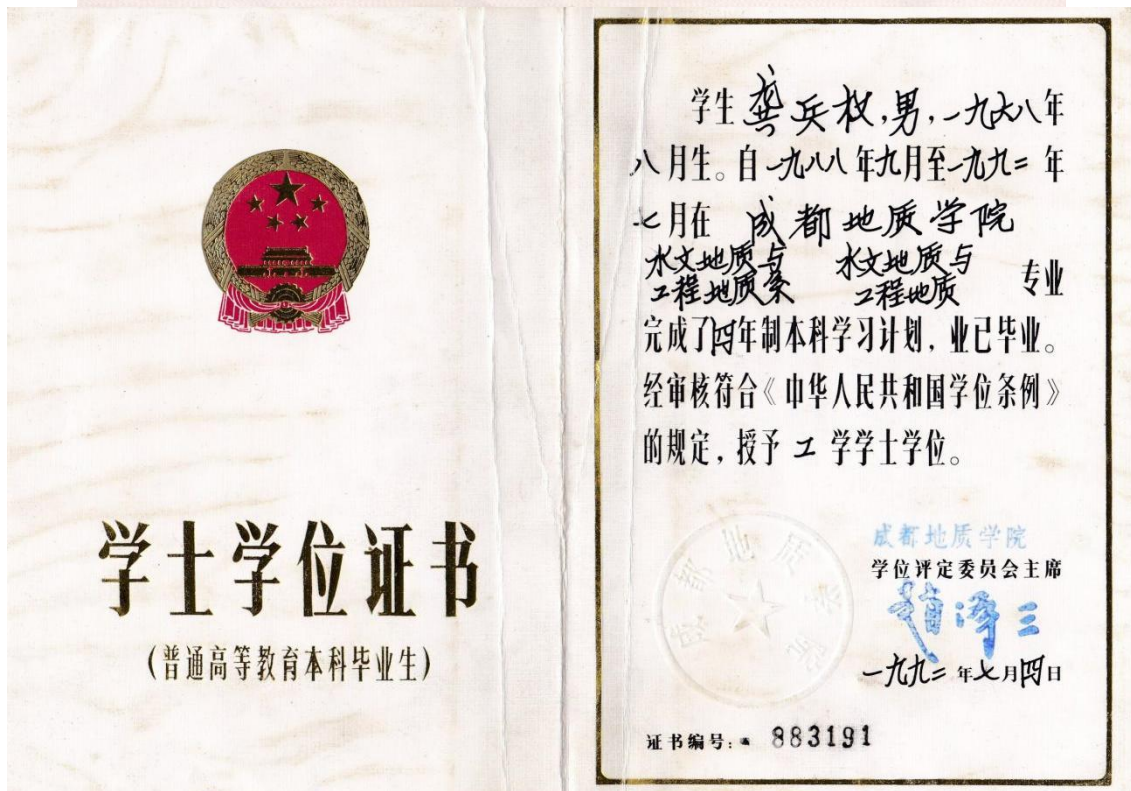 学士学位证书
(普通高等教育本科毕业生)
学生龚兵权,男,一九六八年
八月生。自一九八八年九月至一九九二年
七月在 成都地质学院
水文地质与工程地质系 水文地质与工程地质 专业
完成了四年制本科学习计划,业已毕业。
经审核符合《中华人民共和国学位条例》
的规定,授予工学学士学位。
成都地质学院
成都地质学院
学位评定委员会主席
一九九二年七月四日
证书编号: 883191